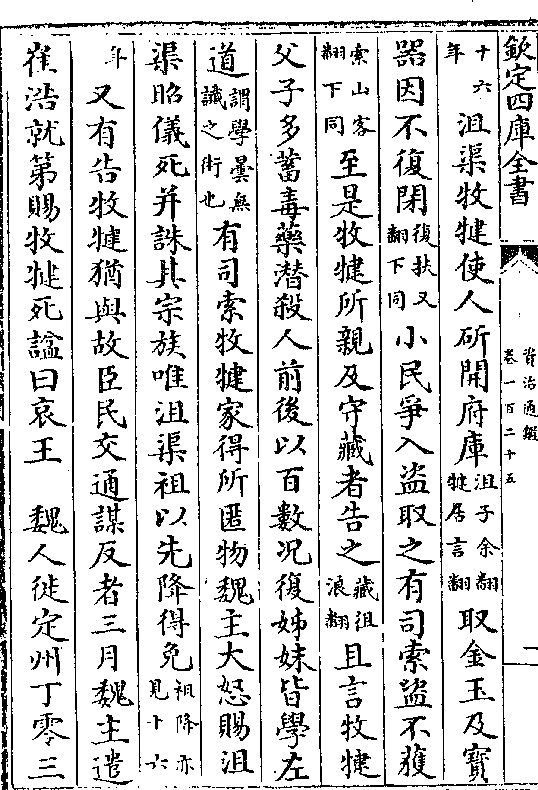 欽定四庫全書
資治通鑑
卷一百二十五
十六年沮渠牧犍使人斫開府庫沮子余翻犍居言翻取金玉及寶
器因不復閉復扶又翻下同小民爭入盜取之有司索盜不獲
索山客翻下同至是牧犍所親及守藏者告之藏徂浪翻且言牧犍
父子多蓄毒藥潛殺人前後以百數況復姊妹皆學左
道謂學曇無讖之術也有司索牧犍家得所匿物魏主大怒賜沮
渠昭儀死并誅其宗族唯沮渠祖以先降得免祖降亦見十六
年又有告牧犍猶與故臣民交通謀反者三月魏主遣
崔浩就第賜牧犍死諡曰哀王　魏人徙定州丁零三